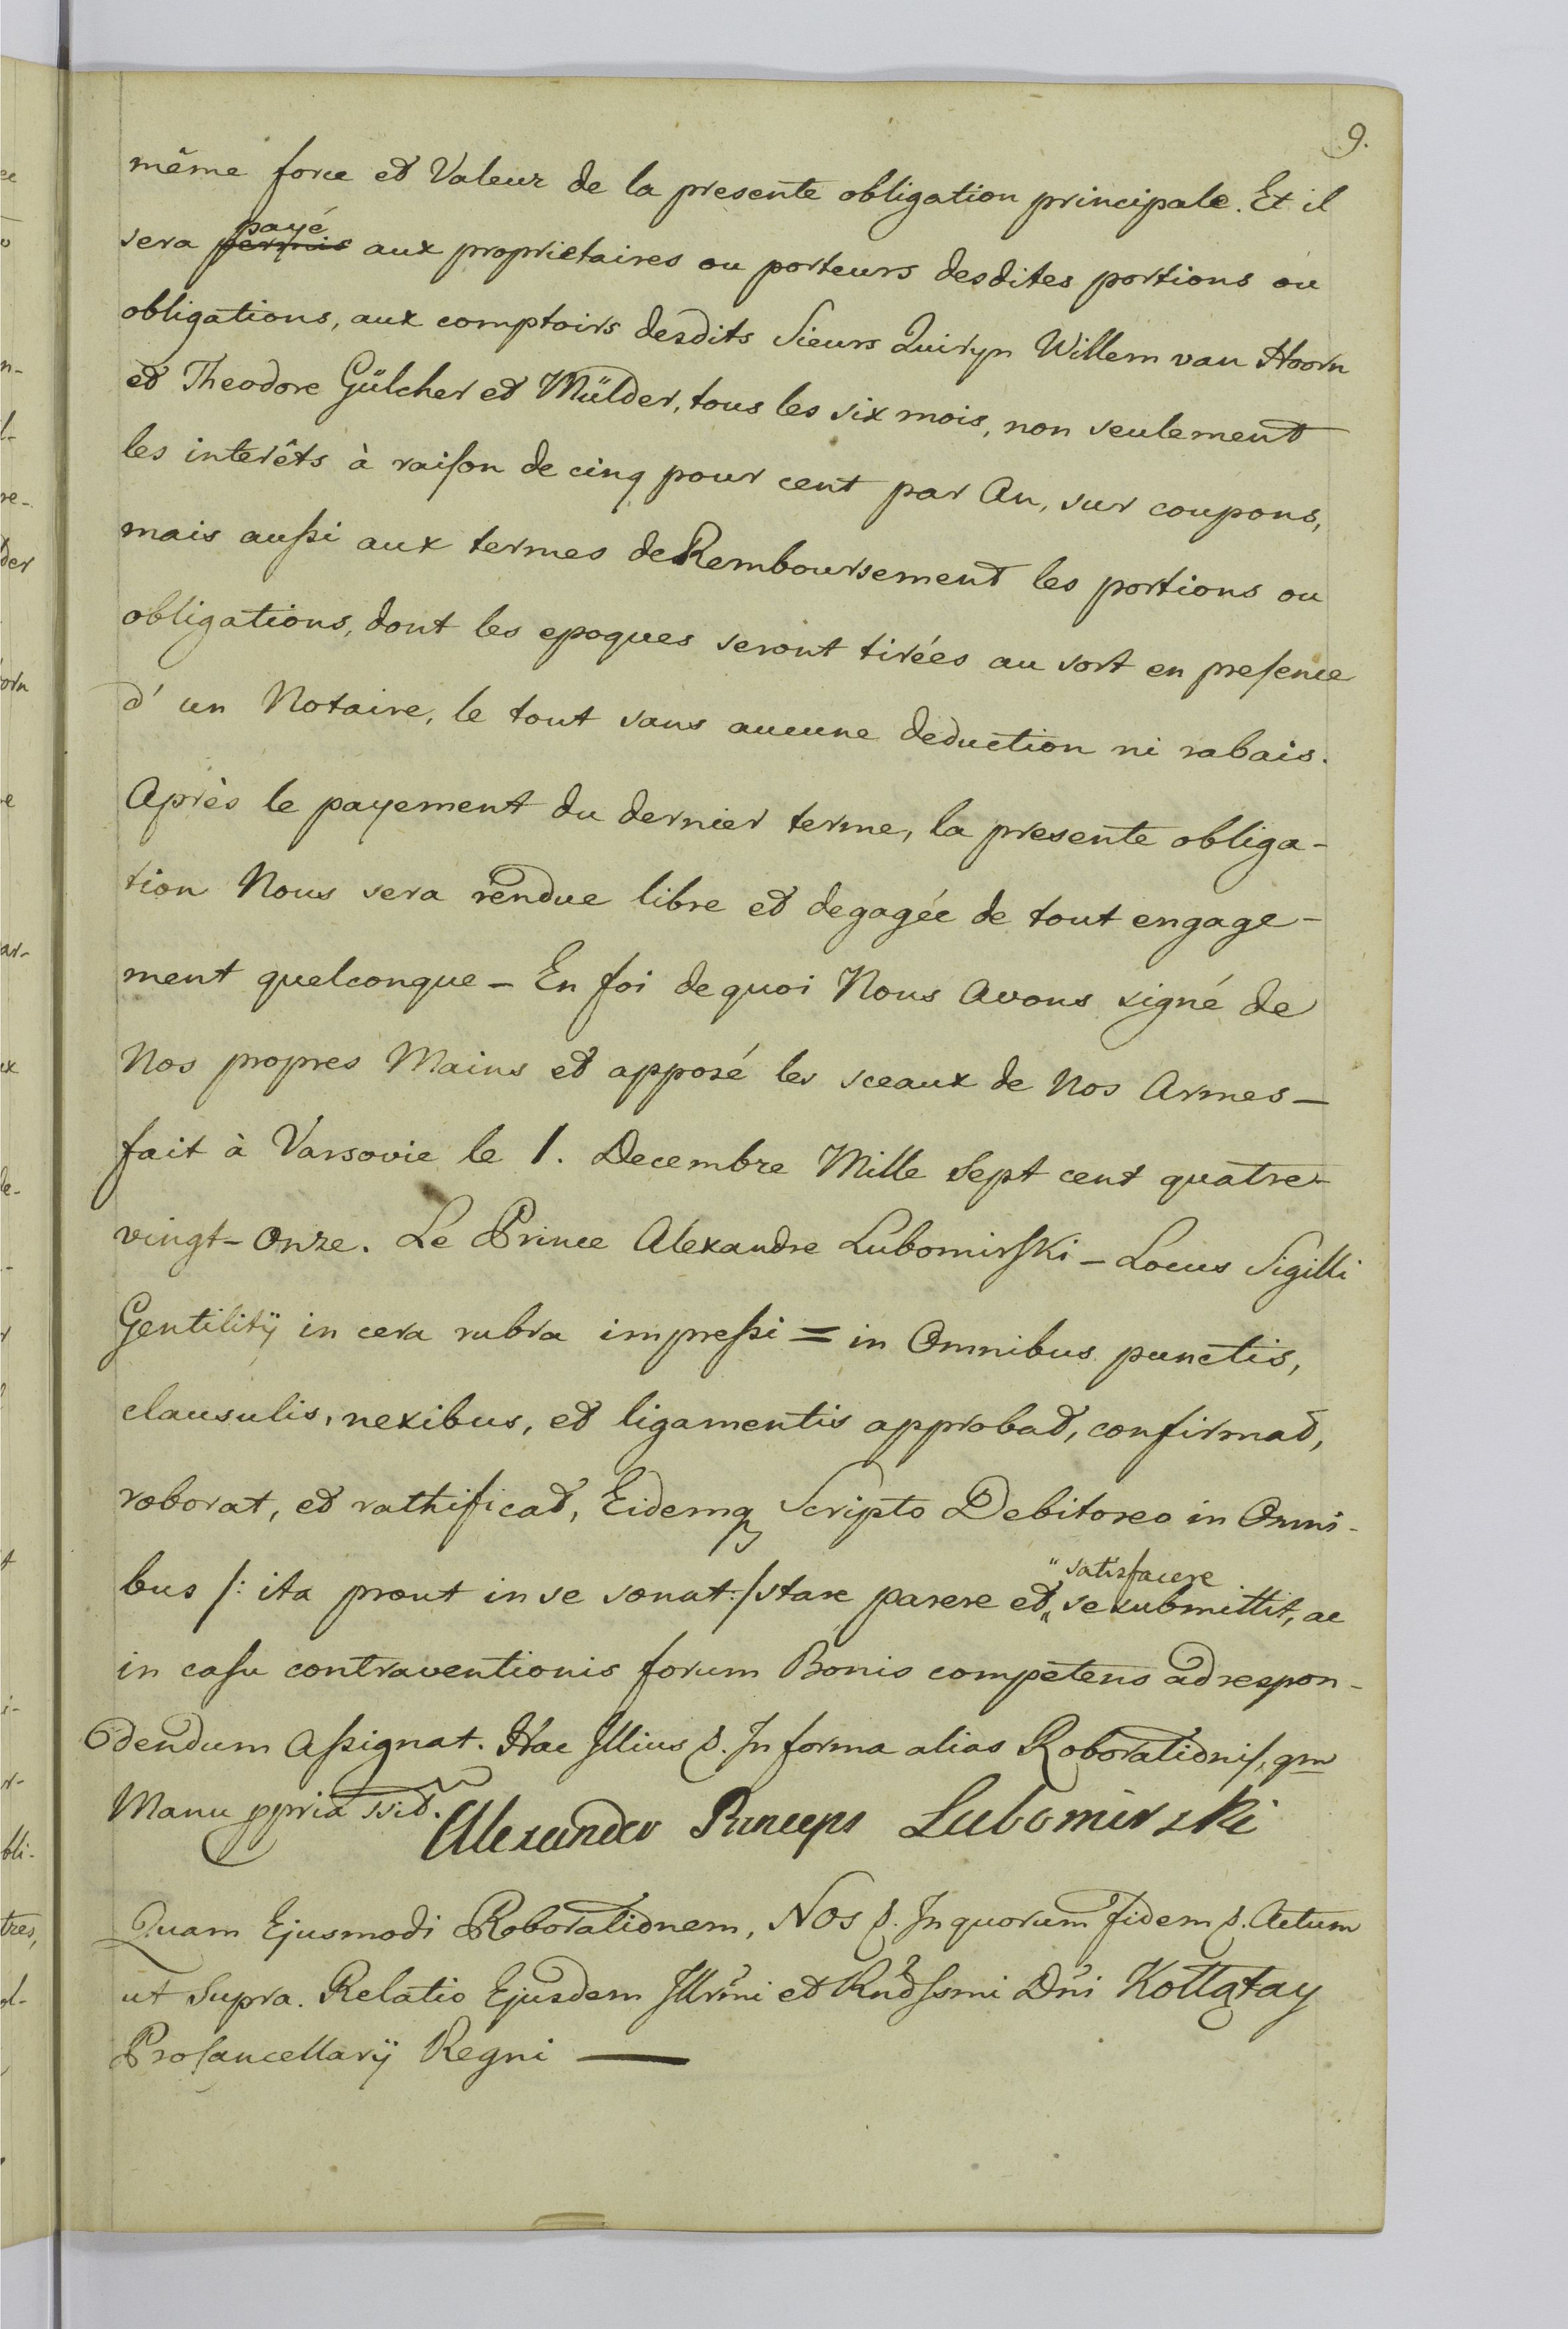 9.
même force et Valeur de la presente obligation principale. Et il
payé
sera permis aux proprietaires ou porteurs desdites portions ou
obligations, aux comptoirs desdits Sieurs Quiryn Willem van Hoorn
et Theodore Gülcher et Mülder, tous les six mois, non seulement
les interêts à raison de cinq pour cent par An, sur coupons,
mais aussi aux termes de Remboursement les portions ou
obligations, dont les epoques seront tirées au sort en presence
d'un Notaire, le tout sans aucune deduction ni rabais.
Après le payement du dernier terme, la presente obliga-
tion Nous sera rendue libre et degagée de tout engage-
ment quelconque - En foi de quoi Nous Avons signé de
Nos propres Mains et apposé les sceaux de Nos Armes -
fait à Varsovie le 1. Decembre Mille Sept cent quatre-
vingt-Onze. Le Prince Alexandre Lubomirski - Locus Sigilli
Gentilitÿ in cera rubra impressi = in Omnibus punctis,
clausulis, nexibus, et ligamentis approbat, confirmat,
roborat, et rathificat, Eidemq Scripto Debitoreo in Omni-
satisfacere
bus /: ita prout in se sonat :/ stare parere et se submittit, ac
in casu contraventionis forum Bonis competens ad respon-
dendum Assignat. Hac Illius &. In forma alias Roborationis, qm
Manu ppria ssit.
Alexander Princeps Lubomirski
Quam Ejusmodi Roborationem, Nos &. In quorum fidem &. Actum
ut Supra. Relatio Ejusdem Illrmi et Rndssmi Dni Kołłątay
Procancellarÿ Regni —